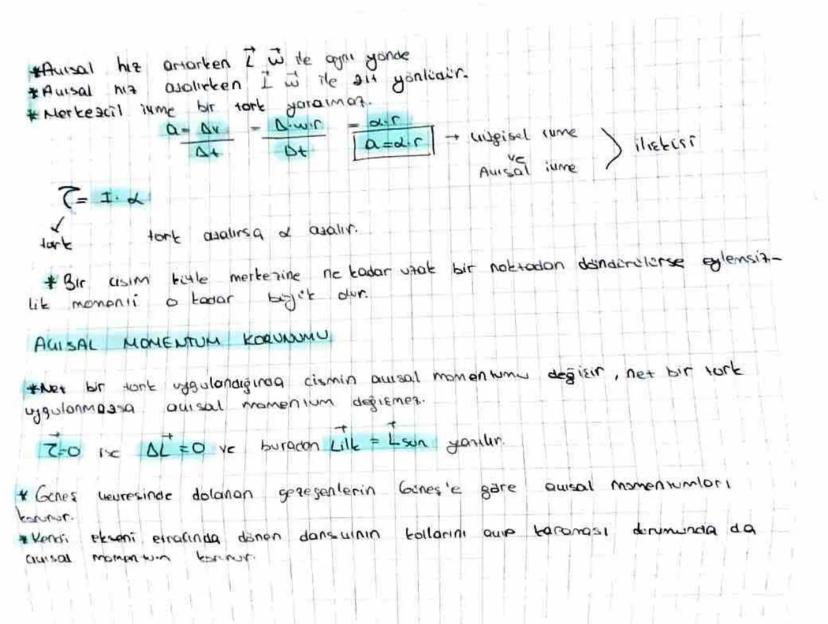 *Açısal hız artarken L⃗ ω⃗ ile aynı yönde
*Açısal hız azalırken L⃗ ω⃗ ile zıt yönlüdür.
*Merkezcil ivme bir tork yaratmaz.
a = Δv/Δt = Δ.w.r/Δt = α.r a=α.r → Çizgisel ivme ve Açısal ivme ilişkisi
τ⃗ = I.α
tork tork azalırsa α azalır.
*Bir cisim kütle merkezine ne kadar uzak bir noktadan döndürülürse eylemsiz-
lik momenti o kadar büyük olur.
AÇISAL MOMENTUM KORUNUMU
*Net bir tork uygulandığında cismin açısal momentumu değişir, net bir tork
uygulanmazsa açısal momentum değişmez.
τ⃗=0 ise ΔL⃗=0 ve buradan L⃗ilk = L⃗son yazılır.
*Güneş çevresinde dolanan gezegenlerin Güneş'e göre açısal momentumları
korunur.
*Kendi ekseni etrafında dönen dansçının kollarını açıp kapaması durumunda da
açısal momentum korunur.